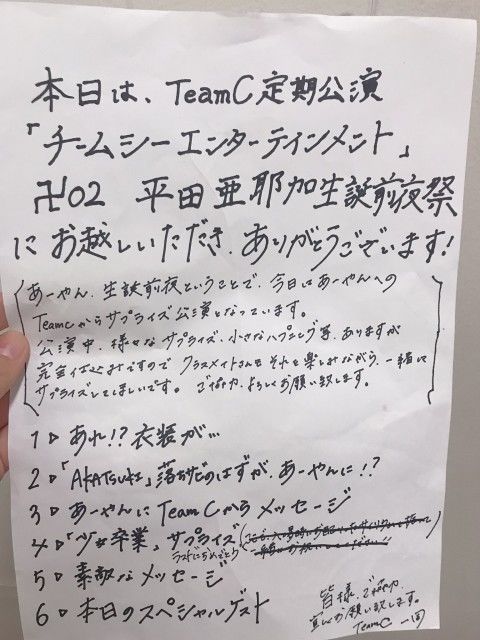 本日は、TeamC定期公演
「チームシーエンターティンメント」
卍02 平田亜耶加生誕前夜祭
にお越しいただき、ありがとうございます!
あーやん、生誕前夜ということで、今日はあーやんへの
TeamCからサプライズ公演となっています。
公演中、様々なサプライズ、小さなハプニング等、ありますが
クラスメイトさんもそれを楽しみながら、一緒に
サプライズしてほしいです。ご協力、よろしくお願い致します。
1▷ あれ!?衣装が…
2▷「AKATSUKI」落ちサビのはずが、あーやんに!?
3▷ あーやんにTeamCからメッセージ
4▷ 卒業」サプライズ
5▷ 素敵なメッセージ
6▷ 本日のスペシャルゲスト
皆様、ご協力、
宜しくお願い致します。
TeamC 一同